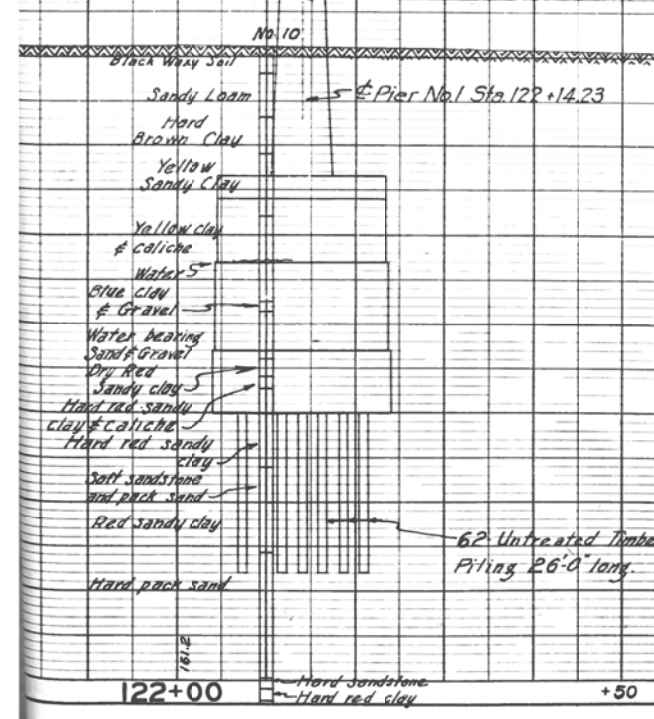 No. 10
Black Waxy Soil
Sandy Loam
℄ Pier No.1 Sta. 122+14.23
Hard
Brown Clay
Yellow
Sandy Clay
Yellow clay
& caliche
Water
Blue clay
& Gravel
Water bearing
Sand & Gravel
Dry Red
Sandy clay
Hard red sandy
clay & caliche
Hard red sandy
clay
Soft sandstone
and pack sand
Red sandy clay
62 Untreated Timbe
Piling 26'-0" long.
Hard pack sand
161.2
Hard sandstone
122+00
Hard red clay
+50